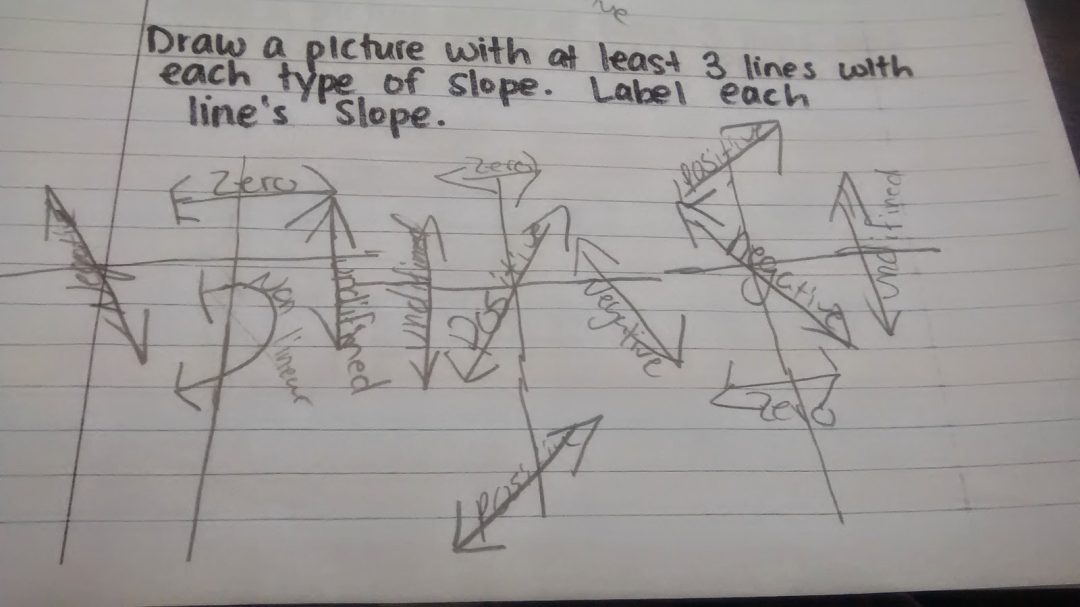 Draw a picture with at least 3 lines with
each type of slope. Label each
line's slope.
Zero
undifined
Non lineur
Zero
Positive
Negative
Positive
Positive
Negative
undifined
Zero